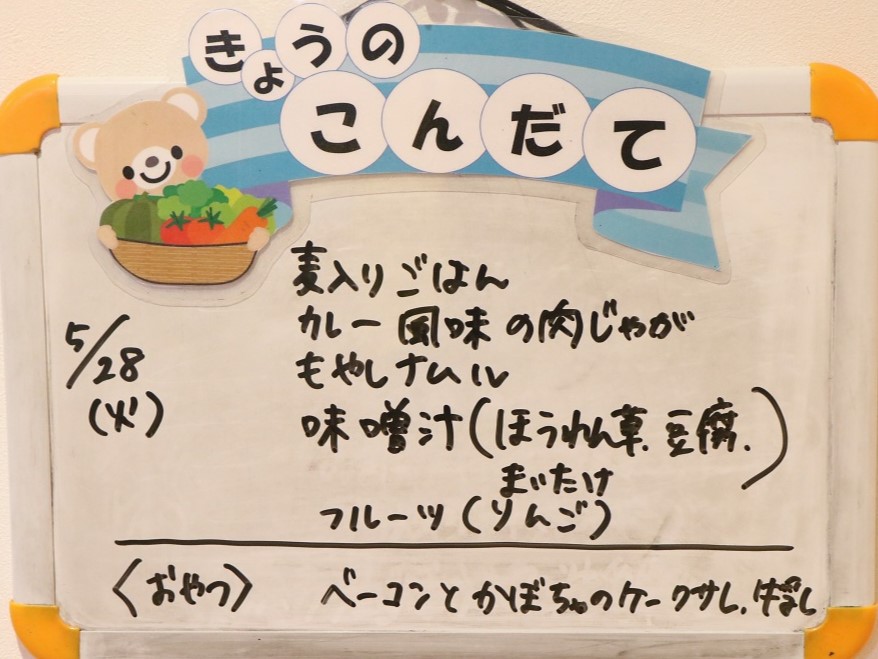 きょうの
こんだて
5/28
(火)
麦入りごはん
カレー風味の肉じゃが
もやしナムル
味噌汁(ほうれん草、豆腐、
まいたけ)
フルーツ(りんご)
〈おやつ〉 ベーコンとかぼちゃのケークサレ、牛乳